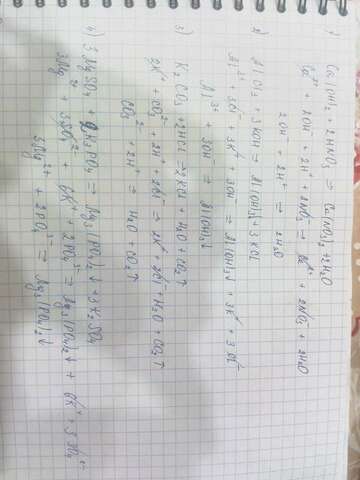 1) Ca(OH)₂ + 2HNO₃ = Ca(NO₃)₂ + 2H₂O
Ca²⁺ + 2OH⁻ + 2H⁺ + 2NO₃⁻ → Ca²⁺ + 2NO₃⁻ + 2H₂O
2OH⁻ + 2H⁺ → 2H₂O
2) AlCl₃ + 3KOH = Al(OH)₃↓ + 3KCl
Al³⁺ + 3Cl⁻ + 3K⁺ + 3OH⁻ = Al(OH)₃↓ + 3K⁺ + 3Cl⁻
Al³⁺ + 3OH⁻ = Al(OH)₃↓
3) K₂CO₃ + 2HCl = 2KCl + H₂O + CO₂↑
2K⁺ + CO₃²⁻ + 2H⁺ + 2Cl⁻ = 2K⁺ + 2Cl⁻ + H₂O + CO₂↑
CO₃²⁻ + 2H⁺ = H₂O + CO₂↑
4) 3MgSO₄ + 2K₃PO₄ = Mg₃(PO₄)₂↓ + 3K₂SO₄
3Mg²⁺ + 3SO₄²⁻ + 6K⁺ + 2PO₄³⁻ = Mg₃(PO₄)₂↓ + 6K⁺ + 3SO₄²⁻
3Mg²⁺ + 2PO₄³⁻ = Mg₃(PO₄)₂↓